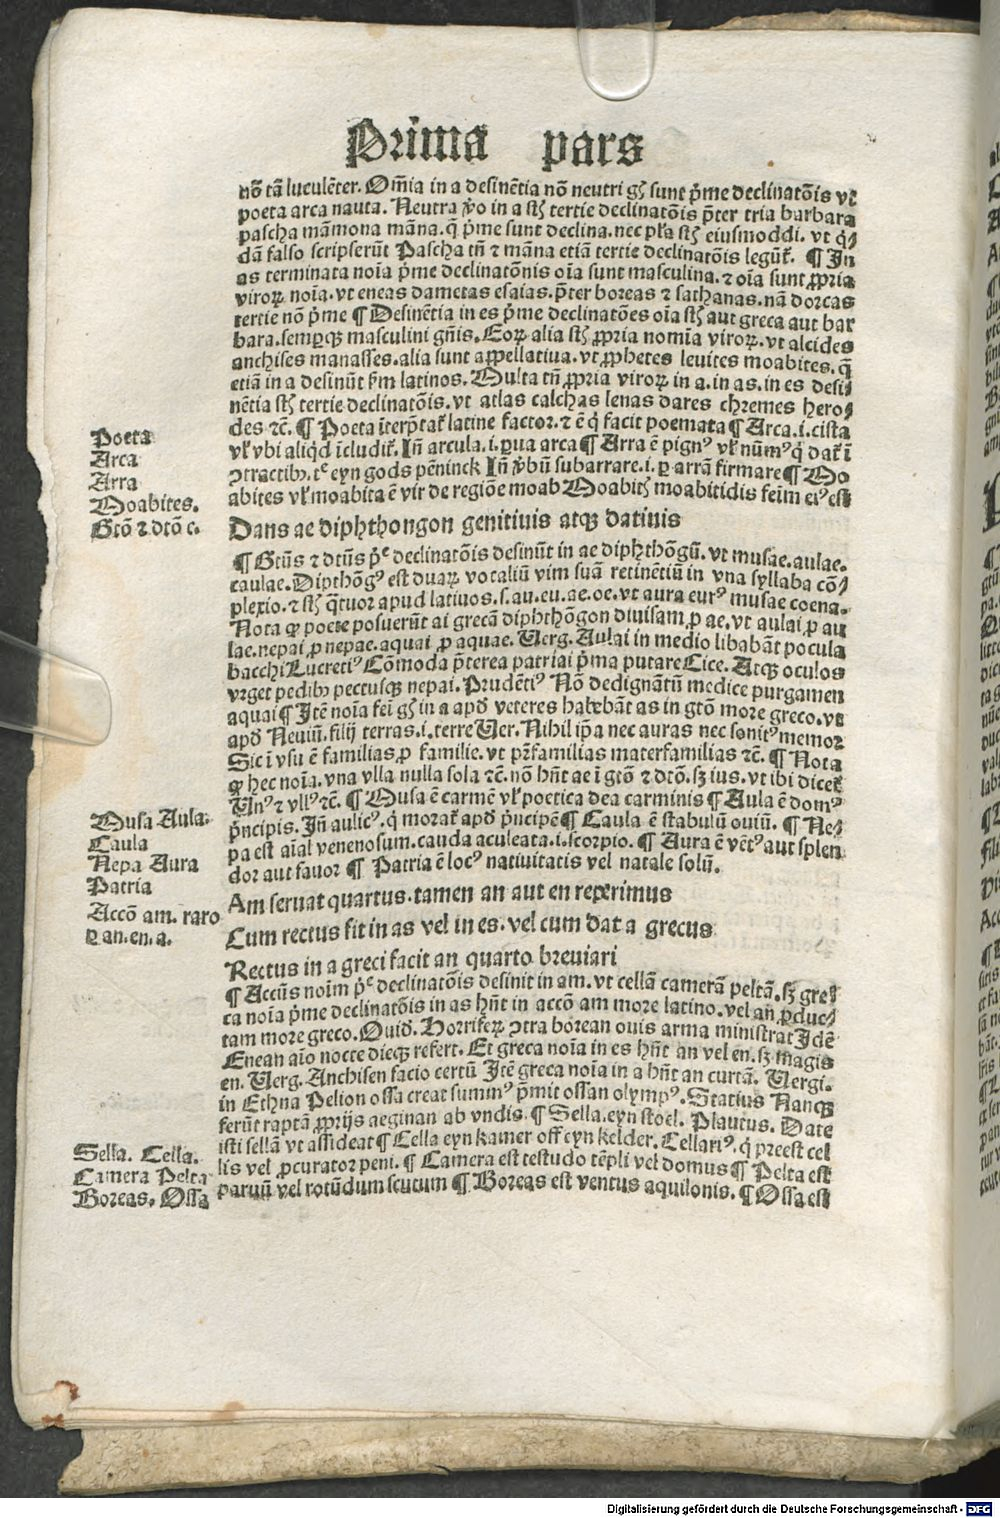 Prima pars
nō tā luculēter. Om̄ia in a desinētia nō neutri gn̄s sunt p̄me declinatōis vt
poeta arca nauta. Neutra v̓o in a sūt tertie declinatōis p̄ter tria barbara
pascha māmona māna. q̄ p̄me sunt declina. nec pl̓a sūt eiusmoddi. vt q̓⸗
dā falso scripserūt Pascha tn̄ ⁊ māna etiā tertie declinatōis legūt᷑. ¶ In
as terminata noīa p̄me declinatōnis oīa sunt masculina. ⁊ oīa sunt ꝓpria
viroꝝ noīa. vt eneas dametas esaias. p̄ter boreas ⁊ sathanas. nā dorcas
tertie nō p̄me ¶ Desinētia in es p̄me declinatōes oīa sūt aut greca aut bar
bara. semꝑqꝫ masculini gn̄is. Eoꝝ alia sūt ꝓpria nomīa viroꝝ. vt alcides
anchises manasses. alia sunt appellatiua. vt ꝓphetes leuites moabites. q̄
etiā in a desinūt ẜm latinos. Multa tn̄ ꝓpria viroꝝ in a. in as. in es desi⸗
nētia sūt tertie declinatōis. vt atlas calchas lenas dares chremes hero⸗
des ⁊c̄. ¶ Poeta īterp̄tat᷑ latine factor. ⁊ ē q̓ facit poemata ¶ Arca .i. cista
vl̓ vbi aliq̓d īcludit᷑. Iñ arcula .i. ꝑua arca ¶ Arra ē pignꝰ vl̓ nūmꝰ q̓ dat᷑ ī
ↄtractibꝫ. tͤ eyn gods pēninck Iñ v̓bū subarrare .i. ꝑ arrā firmare ¶ Mo
abites vl̓ moabita ē vir de regiōe moab Moabitꝭ moabitidis feīm eiꝰ est
Dans ae diphthongon genitiuis atqꝫ datiuis
¶ Gtūs ⁊ dtūs p̄ͤ declinatōis desinūt in ae diphthōgū. vt musae. aulae.
caulae. Dipthōgꝰ est duaꝝ vocaliū vim suā retinētiū in vna syllaba cō⸗
plexio. ⁊ sūt q̄tuor apud latinos .s. au. eu. ae. oe. vt aura eurꝰ musae coena.
Nota ꝙ poete posuerūt ai grecā diphthōgon diuisam ꝓ ae. vt aulai ꝓ au
lae. nepai ꝓ nepae. aquai ꝓ aquae. Uerg. Aulai in medio libabāt pocula
bacchi Lucretiꝰ Cōmoda p̄terea patriai p̄ma putare Cice. Atqꝫ oculos
vrget pedibꝫ pectusqꝫ nepai. Prudētiꝰ Nō dedignātū medice purgamen
aquai ¶ Itē noīa feī gn̄s in a apd̓ veteres habebāt as in gtō more greco. vt
apd̓ Neuiū. filij terras .i. terre Uer. Nihil ip̄a nec auras nec sonitꝰ memor
Sic ī vsu ē familias ꝓ familie. vt pr̄familias materfamilias ⁊c̄. ¶ Nota
ꝙ hec noīa. vna vlla nulla sola ⁊c̄. nō hn̄t ae ī gtō ⁊ dtō. sꝫ ius. vt ibi dicet᷑
Unꝰ ⁊ vllꝰ ⁊c̄. ¶ Musa ē carmē vl̓ poetica dea carminis ¶ Aula ē domꝰ
p̓ncipis. Iñ aulicꝰ. q̓ morat᷑ apd̓ p̓ncipē ¶ Caula ē stabulū ouiū. ¶ Ne⸗
pa est aīal venenosum. cauda aculeata .i. scorpio. ¶ Aura ē vētꝰ aut splen
dor aut fauor ¶ Patria ē locꝰ natiuitatis vel natale solū.
Am seruat quartus. tamen an aut en reperimus
Cum rectus fit in as vel in es. vel cum dat a grecus
Rectus in a greci facit an quarto breuiari
¶ Accūs noīm p̄ͤ declinatōis desinit in am. vt cellā camerā peltā. sꝫ gre⸗
ca noīa p̄me declinatōis in as hn̄t in accō am more latino. vel añ ꝓduc⸗
tam more greco. Ouid̓. Horriferꝫ ↄtra borean ouis arma ministrat Idē
Enean aīo nocte dieqꝫ refert. Et greca noīa in es hn̄t an vel en. sꝫ magis
en. Uerg. Anchisen facio certū Itē greca noīa in a hn̄t an curtā. Uergi.
in Ethna Pelion ossa creat summꝰ p̄mit ossan olympꝰ. Statius Nanqꝫ
ferūt raptā ꝓprijs aeginan ab vndis. ¶ Sella. eyn stoel. Plautus. Date
isti sellā vt assideat ¶ Cella eyn kamer off eyn kelder. Cellariꝰ. q̓ preest cel
lis vel ꝓcurator peni. ¶ Camera est testudo tēpli vel domus ¶ Pelta est
paruū vel rotūdum scutum ¶ Boreas est ventus aquilonis. ¶ Ossa est
Poeta
Arca
Arra
Moabites.
Gtō ⁊ dtō c.
Musa Aula.
Caula
Nepa Aura
Patria
Accō am. raro
ꝑ an. en. a.
Sella. Cella.
Camera Pelta
Boreas. Ossa
Digitalisierung gefördert durch die Deutsche Forschungsgemeinschaft - DFG